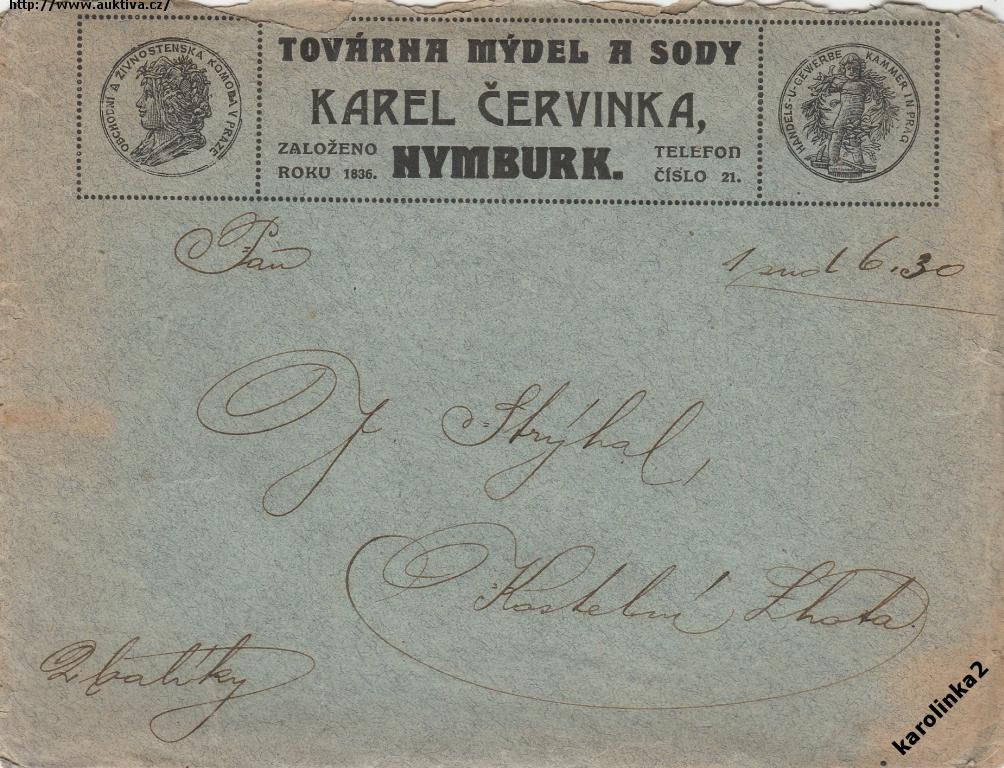 http://www.auktiva.cz/
OBCHODNÍ A ŽIVNOSTENSKÁ KOMORA V PRAZE
TOVÁRNA MÝDEL A SODY
KAREL ČERVINKA,
ZALOŽENO ROKU 1836.
NYMBURK.
TELEFON ČÍSLO 21.
HANDELS-U-GEWERBE KAMMER IN PRAG
Pan
1 sud 6.30
J Strýhal,
Kostelní Lhota.
2 balíky
karolinka2